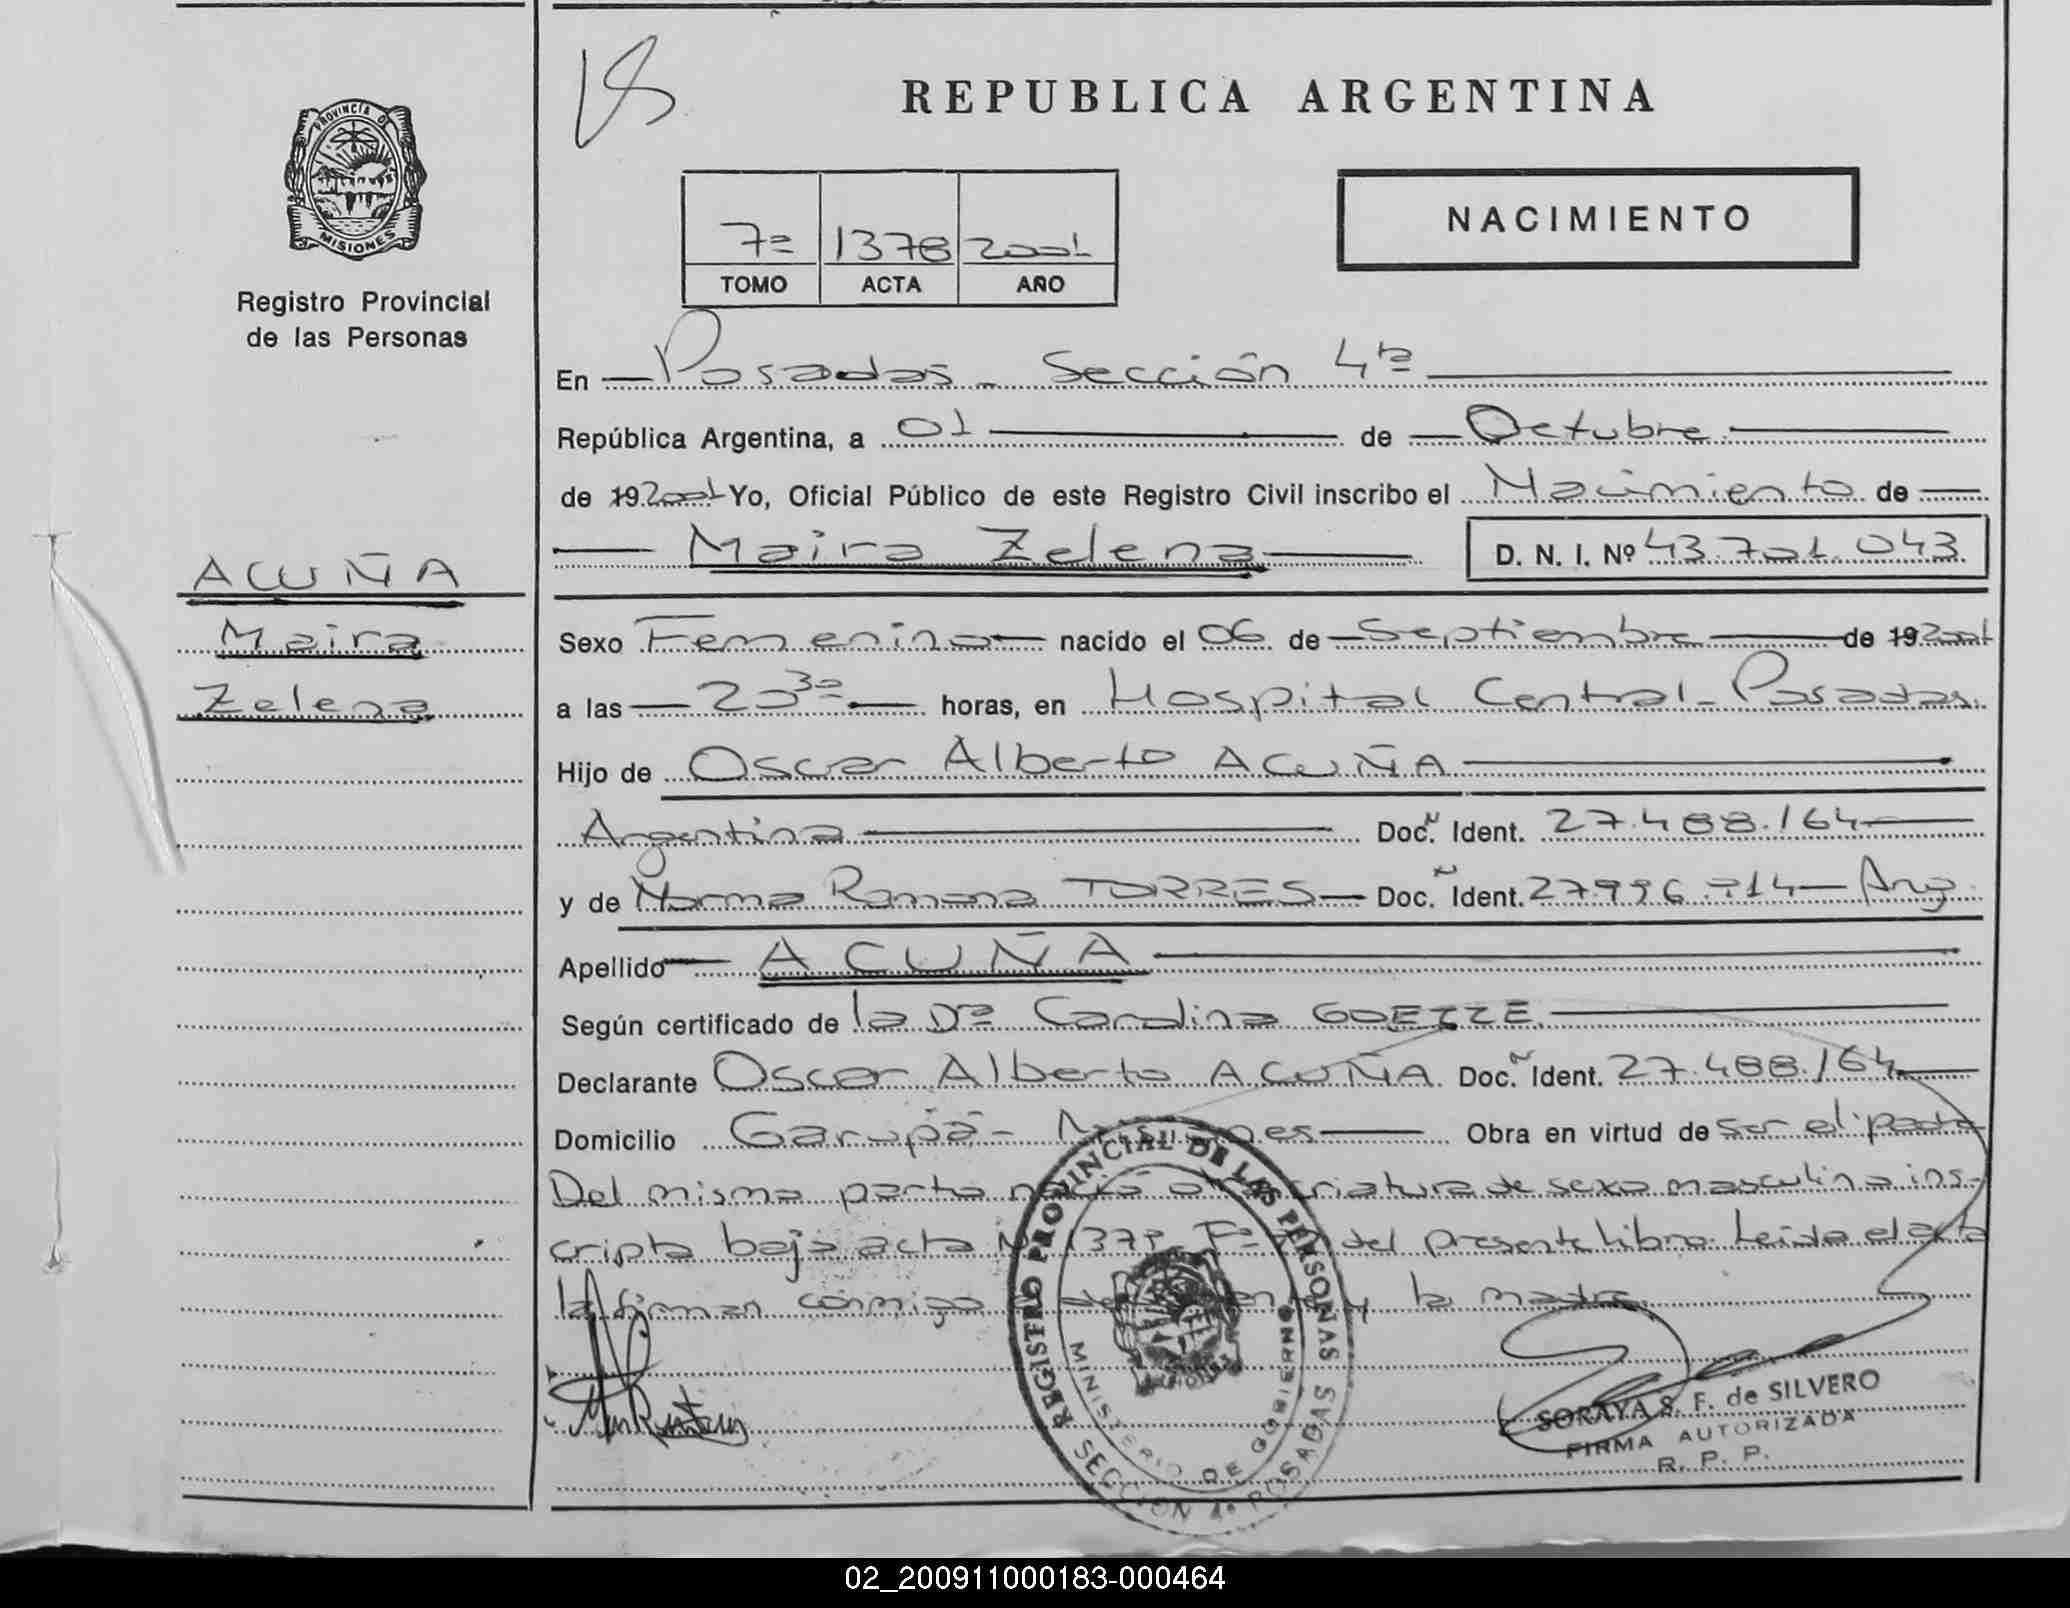 REPUBLICA ARGENTINA
PROVINCIA DE
MISIONES
Registro Provincial
de las Personas
7ª 1378 2001
TOMO ACTA AÑO
NACIMIENTO
En Posadas - Sección 4ta
República Argentina, a 01 de Octubre
de 19 2001 Yo, Oficial Público de este Registro Civil inscribo el Nacimiento de
Maira Zelena D. N. I. Nº 43.701.043
ACUÑA
Maira
Zelena
Sexo Femenino nacido el 06 de Septiembre de 19 2001
a las 20 30 horas, en Hospital Central - Posadas.
Hijo de Oscar Alberto ACUÑA
Argentina Doc. Ident. 27.488.164
y de Norma Ramona TORRES Doc. Ident. 27.996.714 Arg.
Apellido ACUÑA
Según certificado de la Dra Carolina
Declarante Oscar Alberto ACUÑA Doc. Ident. 27.488.164
Domicilio Garupá - Misiones Obra en virtud de ser el padre
Del mismo parto nació otra criatura de sexo masculino ins-
cripta bajo acta Nº 1379 del presente libro. Leida el acta
la firman conmigo y la madre
REGISTRO PROVINCIAL DE LAS PERSONAS
MINISTERIO DE GOBIERNO
SECCION 4ª POSADAS
SORAYA S. F. de SILVERO
FIRMA AUTORIZADA
R. P. P.
02_200911000183-000464